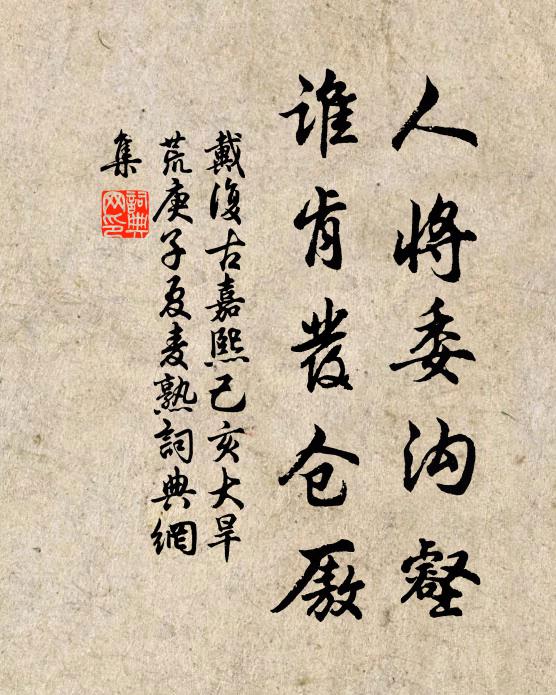 人将委沟壑
谁肯發仓廒
戴復古嘉熙己亥大旱
荒庚子夏麦熟詞典網
集
詞典
网印